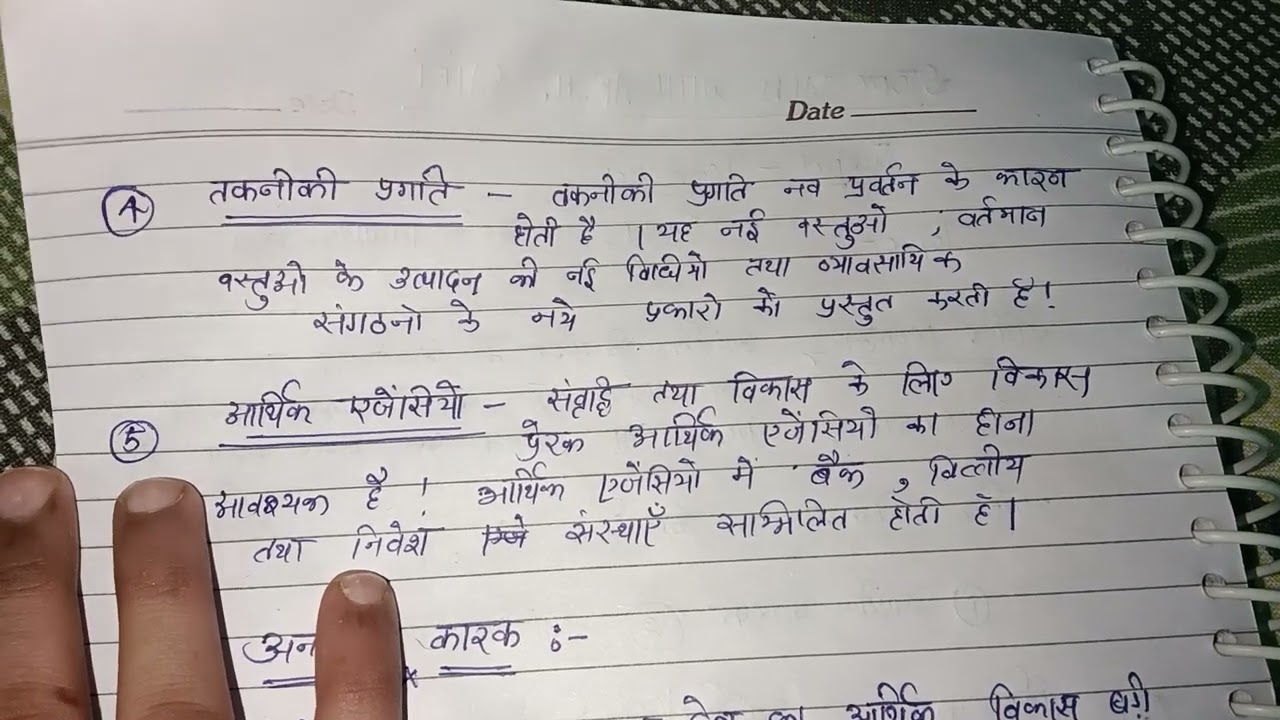 Date
④ तकनीकी प्रगति - तकनीकी प्रगति नव प्रवर्तन के कारन
होती है । यह नई वस्तुओ , वर्तमान
वस्तुओ के उत्पादन की नई विधीयो तथा व्यावसायिक
संगठनो के नये प्रकारो को प्रस्तुत करती है।
⑤ आर्थिक एजेंसियो - तथा विकास के लिए विकास
प्रेरक आर्थिक एजेंसियो का होना
आवश्यक है । आर्थिक एजेंसियो में बैंक , वित्तीय
तथा निवेश संस्थाएँ सम्मिलित होती है।
कारक :-
का आर्थिक विकास